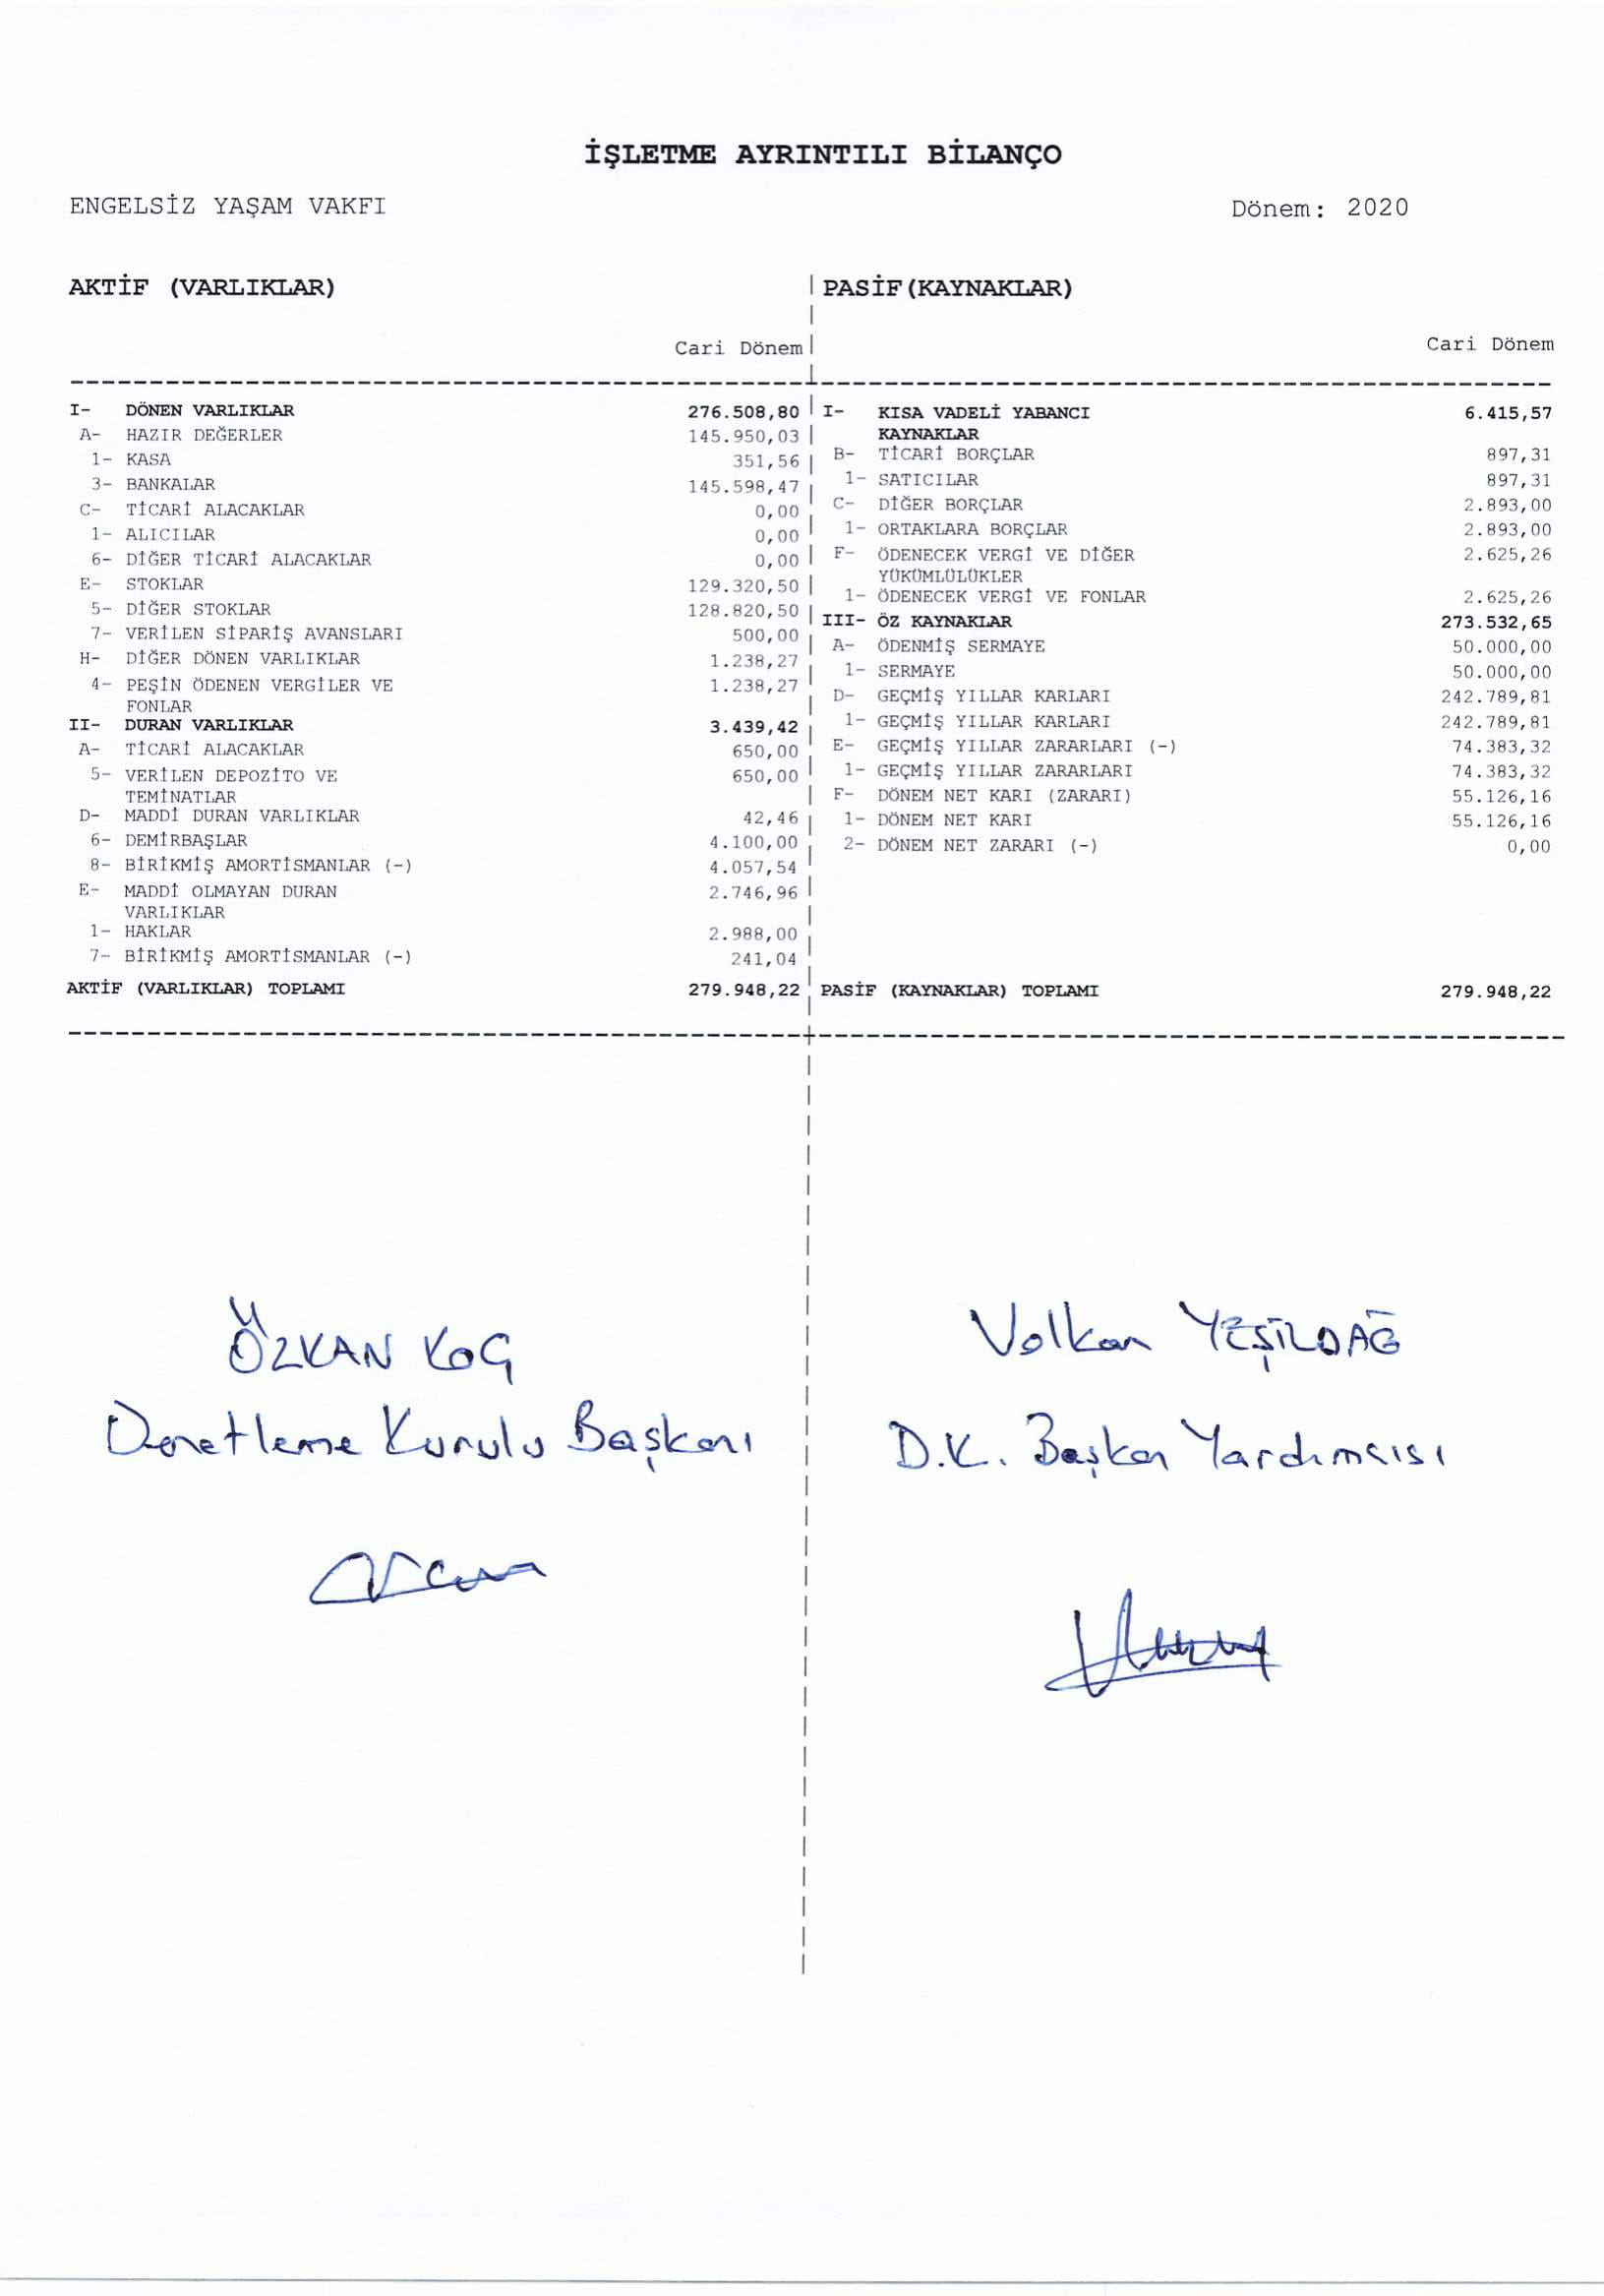 İŞLETME AYRINTILI BİLANÇO
ENGELSİZ YAŞAM VAKFI Dönem: 2020
AKTİF (VARLIKLAR)
Cari Dönem
I- DÖNEN VARLIKLAR 276.508,80
A- HAZIR DEĞERLER 145.950,03
1- KASA 351,56
3- BANKALAR 145.598,47
C- TİCARİ ALACAKLAR 0,00
1- ALICILAR 0,00
6- DİĞER TİCARİ ALACAKLAR 0,00
E- STOKLAR 129.320,50
5- DİĞER STOKLAR 128.820,50
7- VERİLEN SİPARİŞ AVANSLARI 500,00
H- DİĞER DÖNEN VARLIKLAR 1.238,27
4- PEŞİN ÖDENEN VERGİLER VE 1.238,27
FONLAR
II- DURAN VARLIKLAR 3.439,42
A- TİCARİ ALACAKLAR 650,00
5- VERİLEN DEPOZİTO VE 650,00
TEMİNATLAR
D- MADDİ DURAN VARLIKLAR 42,46
6- DEMİRBAŞLAR 4.100,00
8- BİRİKMİŞ AMORTİSMANLAR (-) 4.057,54
E- MADDİ OLMAYAN DURAN 2.746,96
VARLIKLAR
1- HAKLAR 2.988,00
7- BİRİKMİŞ AMORTİSMANLAR (-) 241,04
AKTİF (VARLIKLAR) TOPLAMI 279.948,22
PASİF(KAYNAKLAR)
Cari Dönem
I- KISA VADELİ YABANCI 6.415,57
KAYNAKLAR
B- TİCARİ BORÇLAR 897,31
1- SATICILAR 897,31
C- DİĞER BORÇLAR 2.893,00
1- ORTAKLARA BORÇLAR 2.893,00
F- ÖDENECEK VERGİ VE DİĞER 2.625,26
YÜKÜMLÜLÜKLER
1- ÖDENECEK VERGİ VE FONLAR 2.625,26
III- ÖZ KAYNAKLAR 273.532,65
A- ÖDENMİŞ SERMAYE 50.000,00
1- SERMAYE 50.000,00
D- GEÇMİŞ YILLAR KARLARI 242.789,81
1- GEÇMİŞ YILLAR KARLARI 242.789,81
E- GEÇMİŞ YILLAR ZARARLARI (-) 74.383,32
1- GEÇMİŞ YILLAR ZARARLARI 74.383,32
F- DÖNEM NET KARI (ZARARI) 55.126,16
1- DÖNEM NET KARI 55.126,16
2- DÖNEM NET ZARARI (-) 0,00
PASİF (KAYNAKLAR) TOPLAMI 279.948,22
ÖZKAN KOÇ
Denetleme Kurulu Başkanı
Volkan YEŞİLDAĞ
D.K. Başkan Yardımcısı